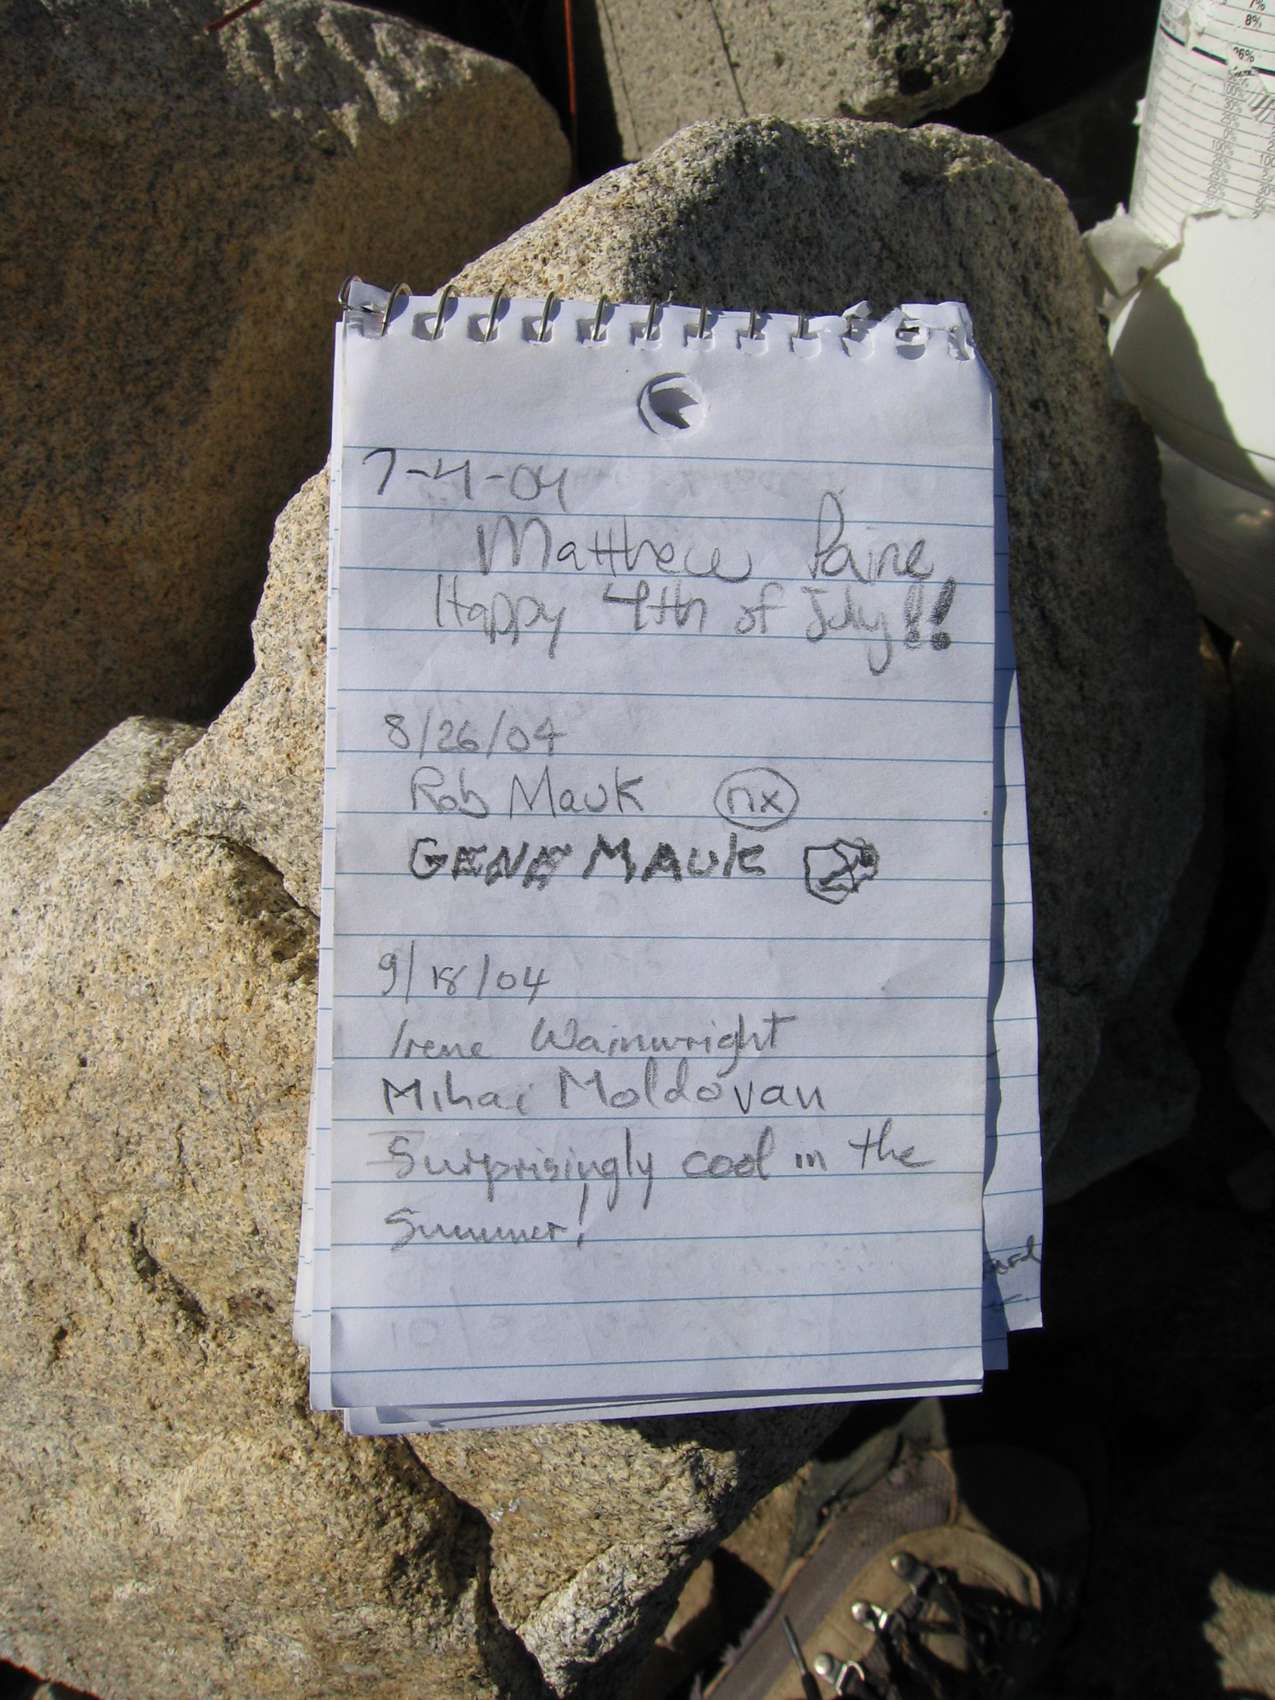 7-4-04
Matthew Paine
Happy 4th of July!!
8/26/04
Rob Mauk nx
GENE MAUK
9/18/04
Irene Wainwright
Mihai Moldovan
Surprisingly cool in the
Summer!
7%
8%